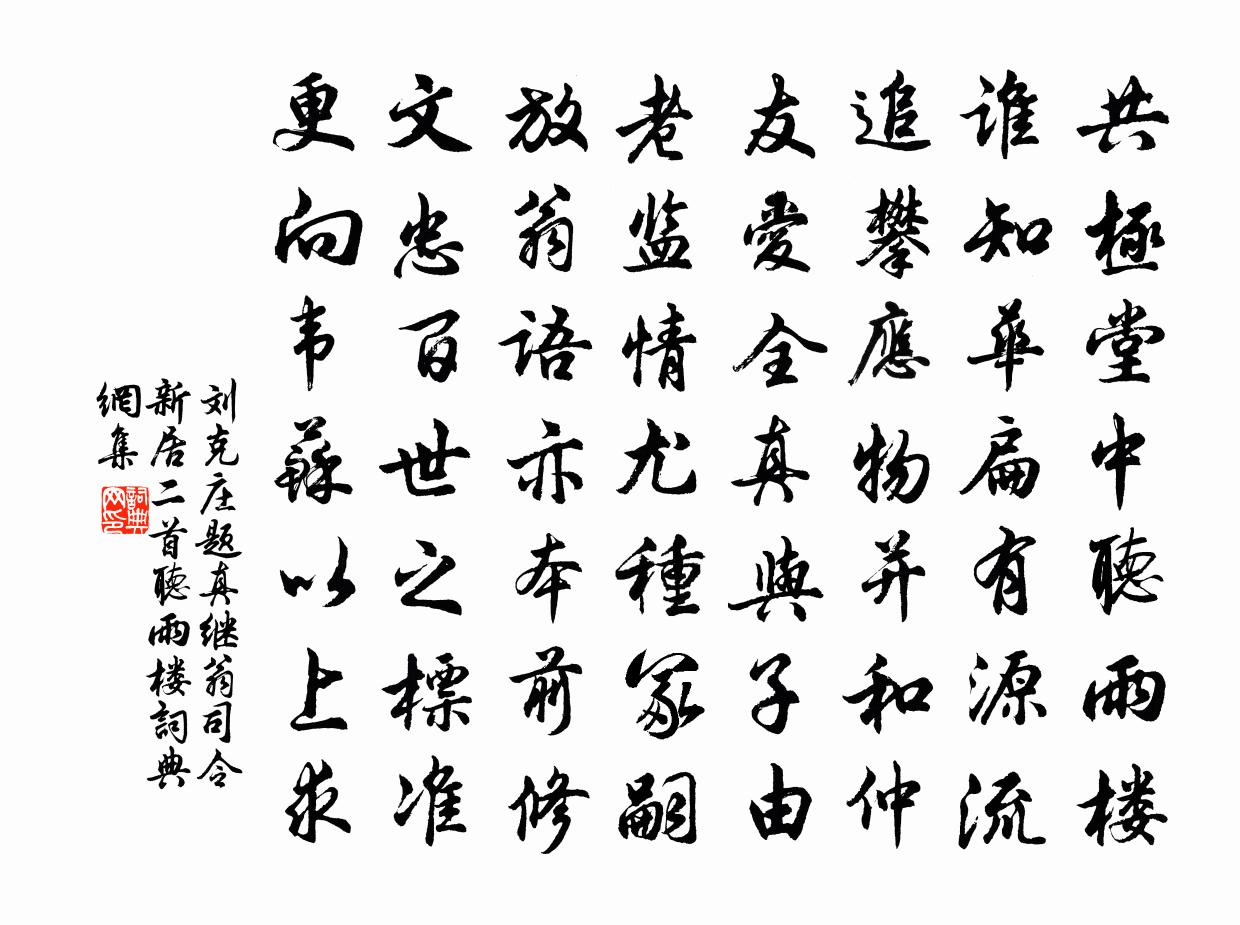 共極堂中聽雨楼
谁知華扁有源流
追攀應物并和仲
友愛全真與子由
老监情尤種冢嗣
放翁語亦本前修
文忠百世之標准
更向韦蘇以上求
刘克庄题真继翁司令
新居二首聽雨楼詞典
網集
詞典
网印